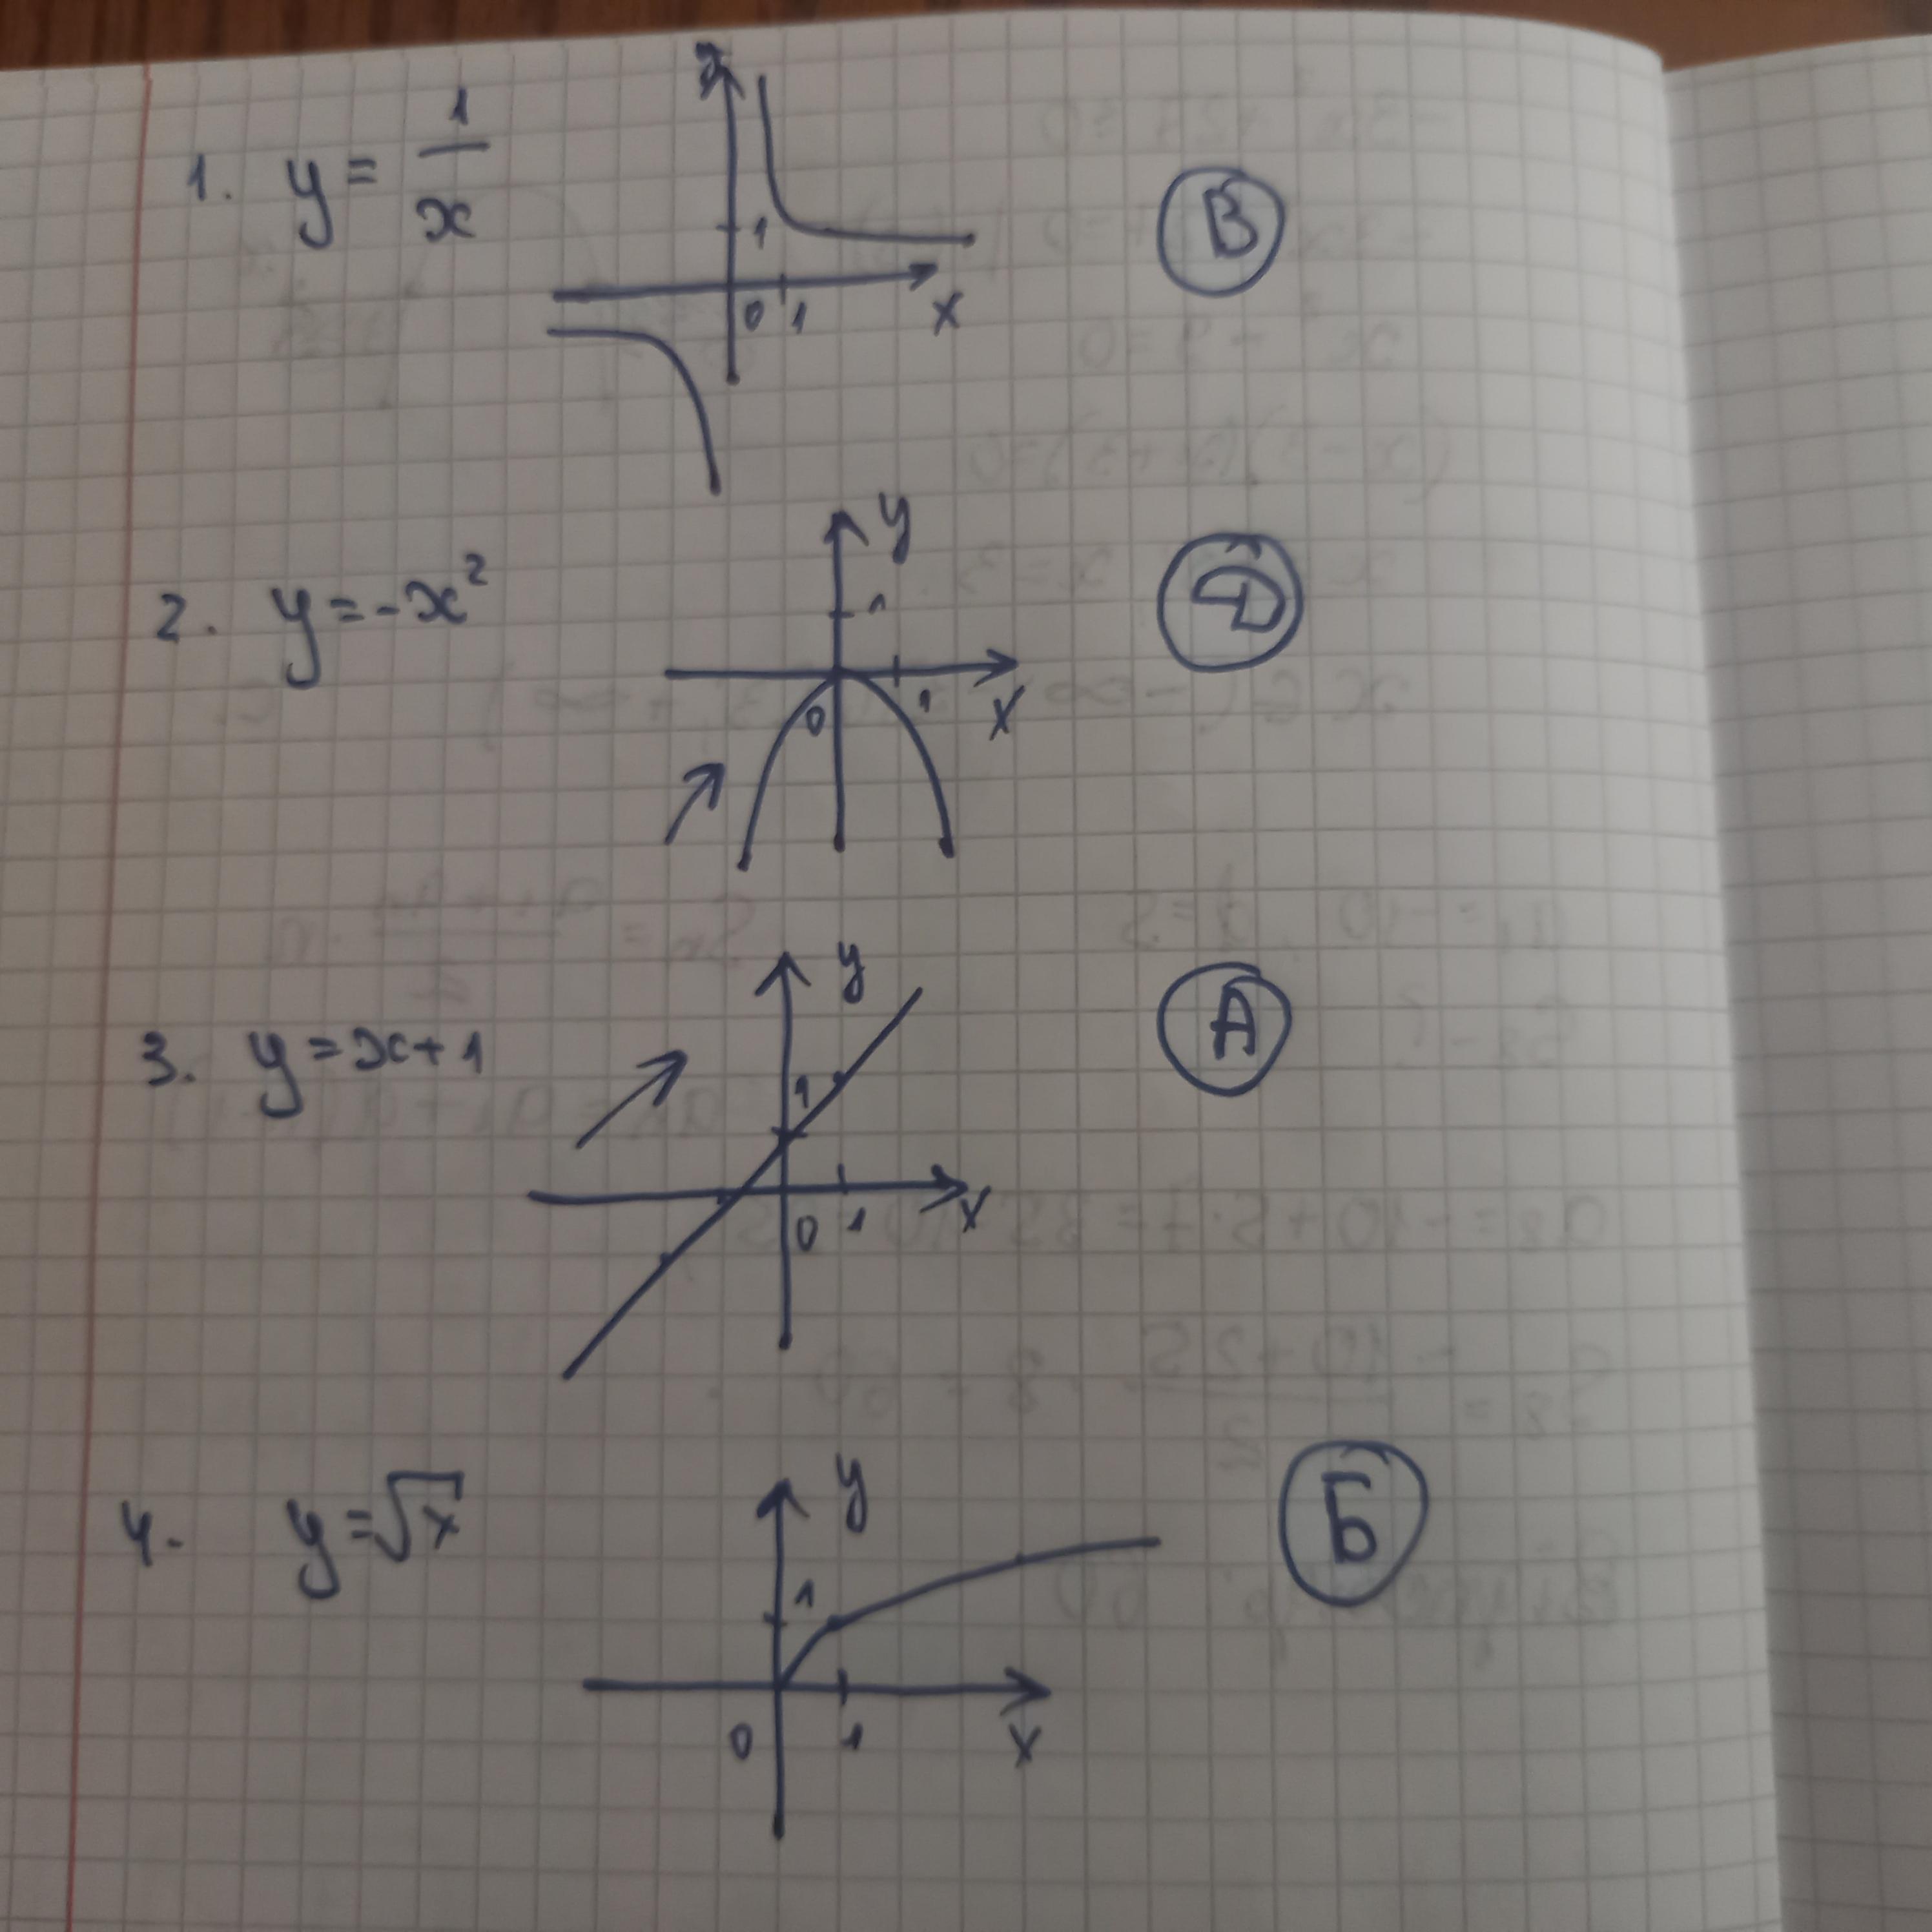 1. y = 1/x
y
1
0 1
x
В
2. y = -x²
y
1
0 1
x
Д
3. y = x + 1
y
1
0 1
x
А
4. y = √x
y
1
0 1
x
Б